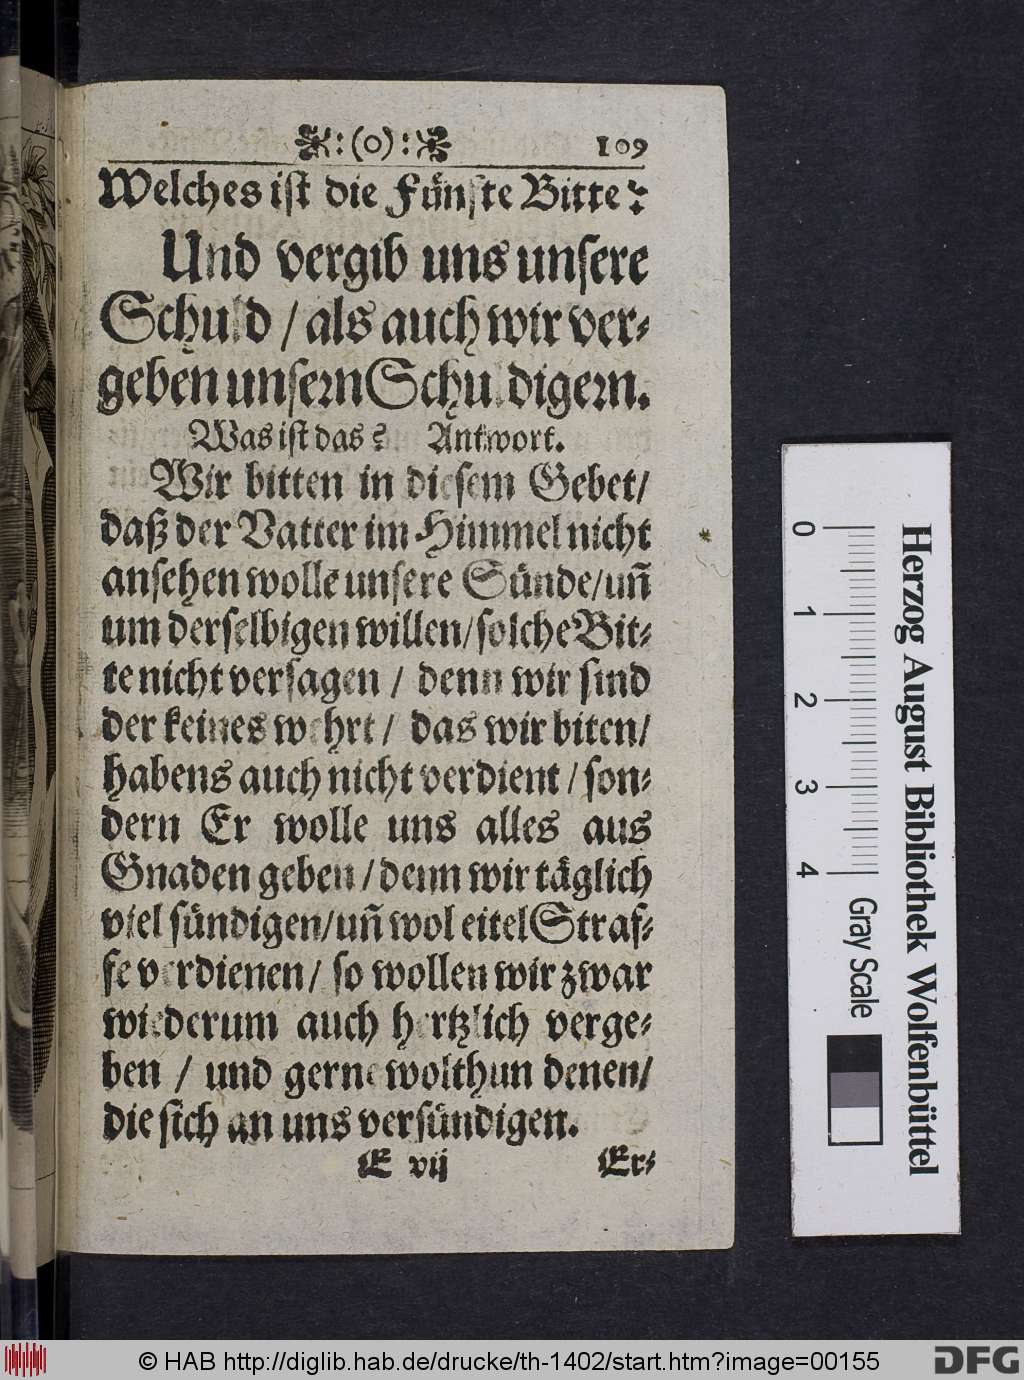 :(o): 109
Welches ist die Fünfte Bitte?
Und vergib uns unsere
Schuld / als auch wir ver-
geben unsern Schuldigern.
Was ist das? Antwort.
Wir bitten in diesem Gebet/
daß der Vatter im Himmel nicht
ansehen wolle unsere Sünde/uñ
um derselbigen willen/solche Bit-
te nicht versagen / denn wir sind
der keines wehrt / das wir biten/
habens auch nicht verdient / son-
dern Er wolle uns alles aus
Gnaden geben / denn wir täglich
viel sündigen/uñ wol eitel Straf-
fe verdienen / so wollen wir zwar
wiederum auch hertzlich verge-
ben / und gerne wolthun denen/
die sich an uns versündigen.
E vij Er-
0 1 2 3 4 Gray Scale
Herzog August Bibliothek Wolfenbüttel
© HAB http://diglib.hab.de/drucke/th-1402/start.htm?image=00155
DFG